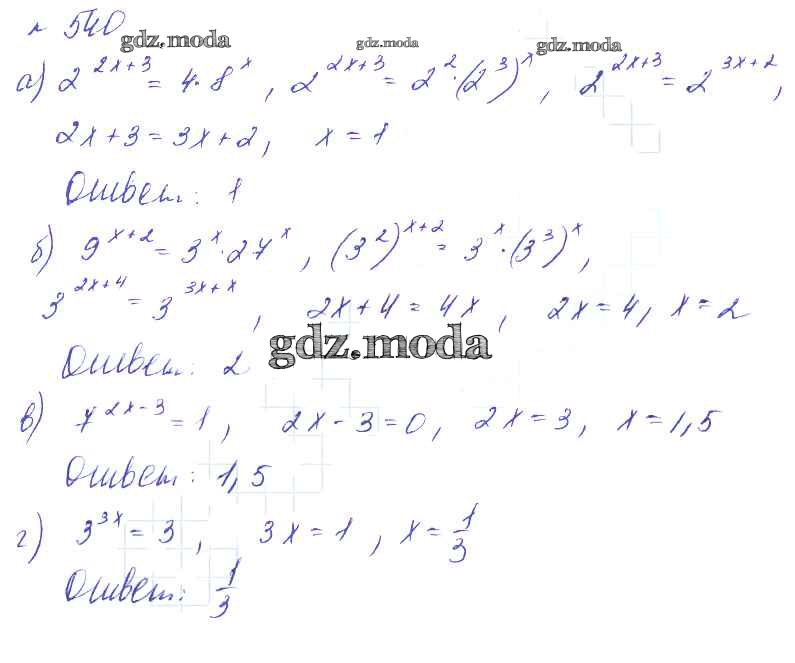 № 540
gdz.moda gdz.moda gdz.moda
а) 2^{2x+3} = 4·8^x, 2^{2x+3} = 2^2·(2^3)^x, 2^{2x+3} = 2^{3x+2},
2x+3=3x+2, x=1
Ответ: 1
б) 9^{x+2} = 3^x·27^x, (3^2)^{x+2} = 3^x·(3^3)^x,
3^{2x+4} = 3^{3x+x}, 2x+4=4x, 2x=4, x=2
gdz.moda
Ответ: 2
в) 7^{2x-3} = 1, 2x-3=0, 2x=3, x=1,5
Ответ: 1,5
г) 3^{3x} = 3, 3x=1, x=1/3
Ответ: 1/3